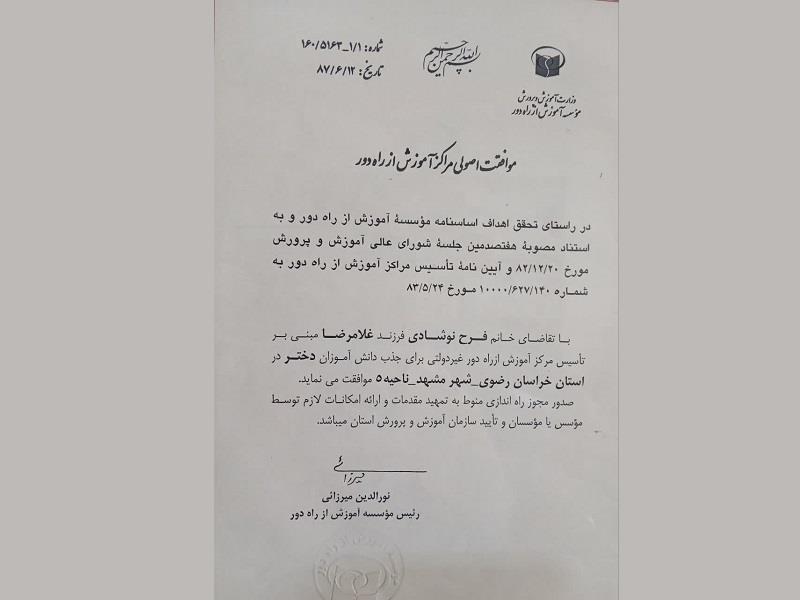 شماره: ۱/۱_۱۶۰/۵۱۶۳
تاریخ: ۸۷/۶/۱۲
بسم الله الرحمن الرحیم
وزارت آموزش و پرورش
مؤسسه آموزش از راه دور
موافقت اصولی مراکز آموزش از راه دور
در راستای تحقق اهداف اساسنامه مؤسسهٔ آموزش از راه دور و به
استناد مصوبهٔ هفتصدمین جلسهٔ شورای عالی آموزش و پرورش
مورخ ۸۲/۱۲/۲۰ و آیین نامهٔ تأسیس مراکز آموزش از راه دور به
شماره ۱۰۰۰۰/۶۲۷/۱۴۰ مورخ ۸۳/۵/۲۴
با تقاضای خانم فرح نوشادی فرزند غلامرضا مبنی بر
تأسیس مرکز آموزش ازراه دور غیردولتی برای جذب دانش آموزان دختر در
استان خراسان رضوی_شهر مشهد_ناحیه۵ موافقت می نماید.
صدور مجوز راه اندازی منوط به تمهید مقدمات و ارائه امکانات لازم توسط
مؤسس یا مؤسسان و تأیید سازمان آموزش و پرورش استان میباشد.
نورالدین میرزائی
رئیس مؤسسه آموزش از راه دور